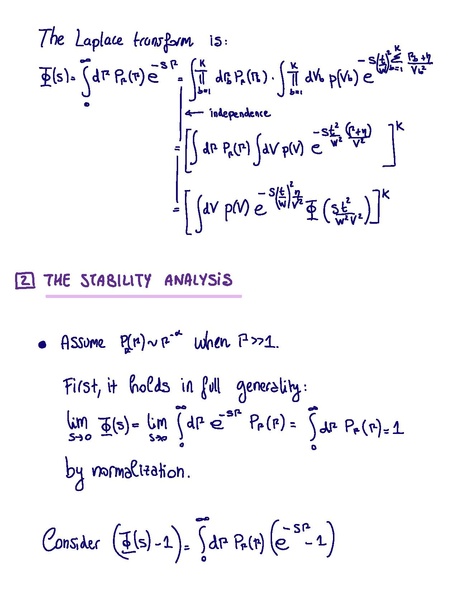 The Laplace transform is:
Φ(s) = ∫₀^∞ dΓ P_Γ(Γ) e^{-sΓ} = ∫ ∏_{b=1}^{K} dΓ_b P_Γ(Γ_b) · ∫ ∏_{b=1}^{K} dV_b p(V_b) e^{-s(t/W)² Σ_{b=1}^{K} (Γ_b+η)/V_b²}
← independence
= [∫ dΓ P_Γ(Γ) ∫ dV p(V) e^{-s t²/W² (Γ+η)/V²}]^K
= [∫ dV p(V) e^{-s(t/W)² η/V²} Φ(st²/W²V²)]^K
2 THE STABILITY ANALYSIS
• ASSUME P_Γ(Γ) ~ Γ^{-α} when Γ >> 1.
First, it holds in full generality:
lim_{s→0} Φ(s) = lim_{s→0} ∫₀^∞ dΓ e^{-sΓ} P_Γ(Γ) = ∫₀^∞ dΓ P_Γ(Γ) = 1
by normalization.
Consider (Φ(s) - 1) = ∫₀^∞ dΓ P_Γ(Γ) (e^{-sΓ} - 1)